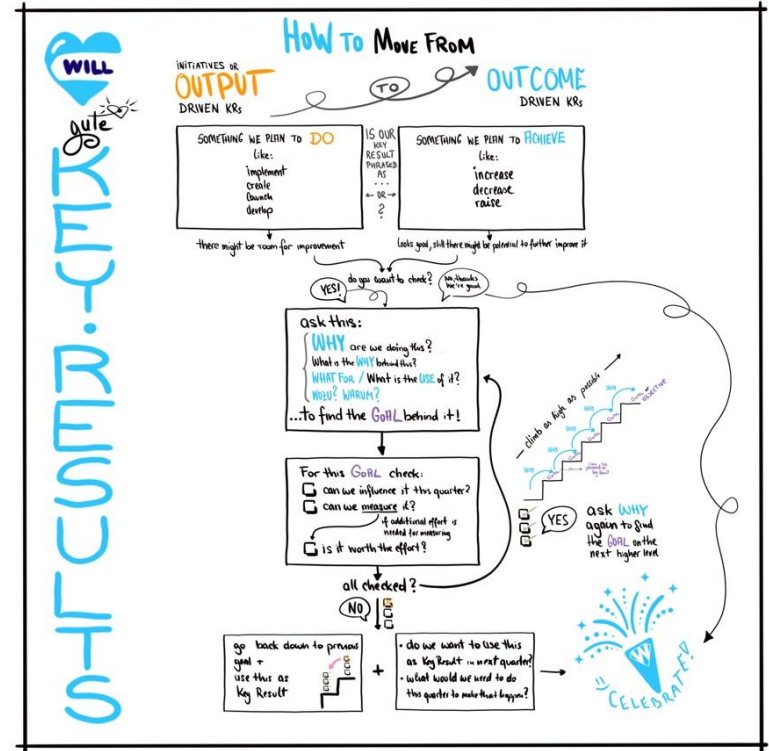 WILL
gute
KEY·RESULTS
HOW TO MOVE FROM
INITIATIVES OR
OUTPUT
DRIVEN KRs
TO
OUTCOME
DRIVEN KRs
SOMETHING WE PLAN TO DO
like:
implement
create
launch
develop
IS OUR
KEY
RESULT
PHRASED
AS
...
← OR →
?
SOMETHING WE PLAN TO ACHIEVE
like:
increase
decrease
raise
there might be room for improvement
looks good, still there might be potential to further improve it
do you want to check?
YES!
No, thanks
We're good
ask this:
WHY are we doing this?
What is the WHY behind this?
WHAT FOR / What is the USE of it?
WOZU? WARUM?
...to find the GOAL behind it!
For this GOAL check:
can we influence it this quarter?
can we measure it?
if additional effort is
needed for measuring
is it worth the effort?
all checked?
NO
climb as high as possible
WHY
GOAL
WHY
GOAL
WHY
GOAL
WHY
GOAL
WHY
GOAL
OBJECTIVE
YES
ask WHY
again to find
the GOAL on the
next higher level
go back down to previous
goal +
use this as
Key Result
+
• do we want to use this
as Key Result in next quarter?
• what would we need to do
this quarter to make that happen?
W
CELEBRATE!